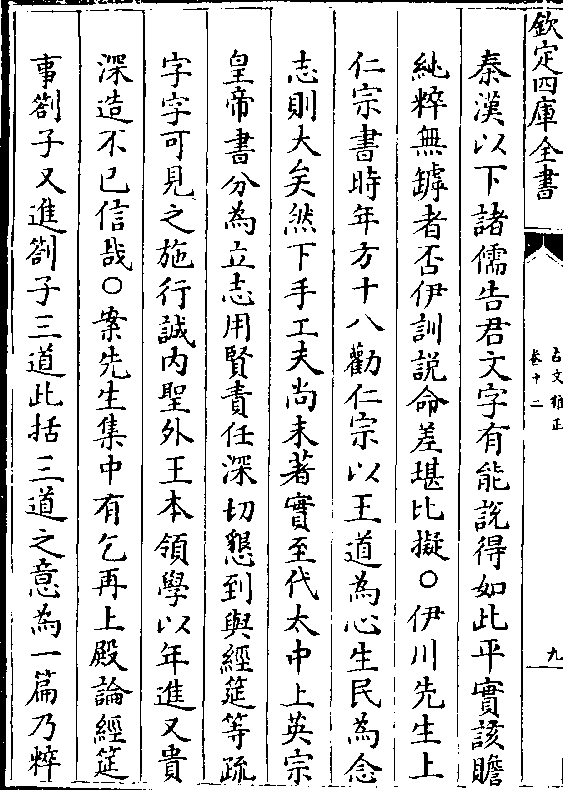 欽定四庫全書
古文雅正
卷十二
九
秦漢以下諸儒告君文字有能說得如此平實該贍
純粹無罅者否伊訓說命差堪比擬○伊川先生上
仁宗書時年方十八勸仁宗以王道為心生民為念
志則大矣然下手工夫尚未著實至代太中上英宗
皇帝書分為立志用賢責任深切懇到與經筵等疏
字字可見之施行誠內聖外王本領學以年進又貴
深造不已信哉○案先生集中有乞再上殿論經筵
事劄子又進劄子三道此括三道之意為一篇乃粹